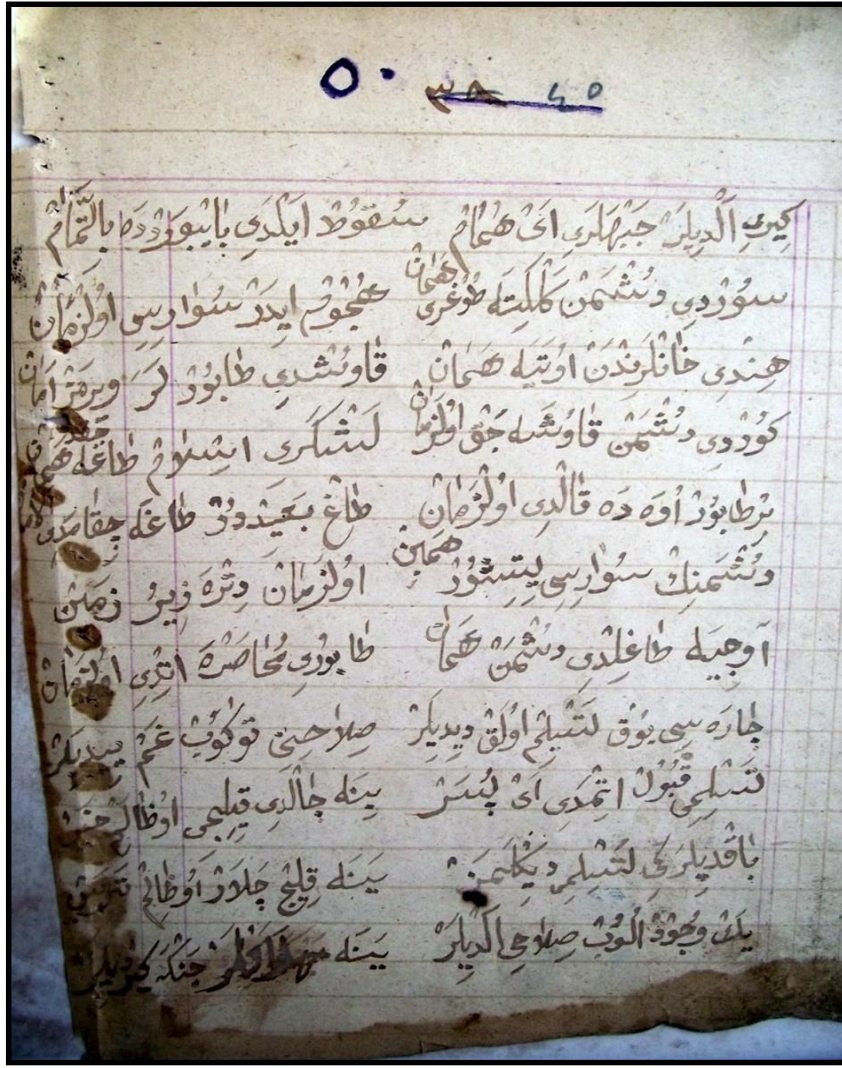 ٥٠ ٣٨ ٤٥
كيرى الديلر جبهه‌لرى اى همام سقوط ايلدى بايبوردده بالتمام
سوردى دشمن كلكته طوغرى همان هجوم ايدر سوارىسى اولزمان
هندى خانلرندن اوتيه همان قاوشدى طابور لر ويرمز امان
كوردى دشمن قاوشه جق اولزمان لشكرى اسلام طاغه همان
بر طابور اوه ده قالدى اولزمان طاغ بعيددر طاغه چقامدى
دشمنك سوارىسى يتشور همين اولزمان دتره زير زمين
آوجيه طاغلدى دشمن همان طابورى محاصره اتدى اولزمان
چاره سى يوق تسليم اولق ديديلر صلاحنى توكوب غم ييديلر
تسليمى قبول اتمدى اى پسر ينه چالدى قيليجى اوظالم
باقديلركى تسليمى ديكلمز ينه قليچ چلار اوظالم
يك وجود الوب صلاحى الديلر ينه جنكه كيرديلر